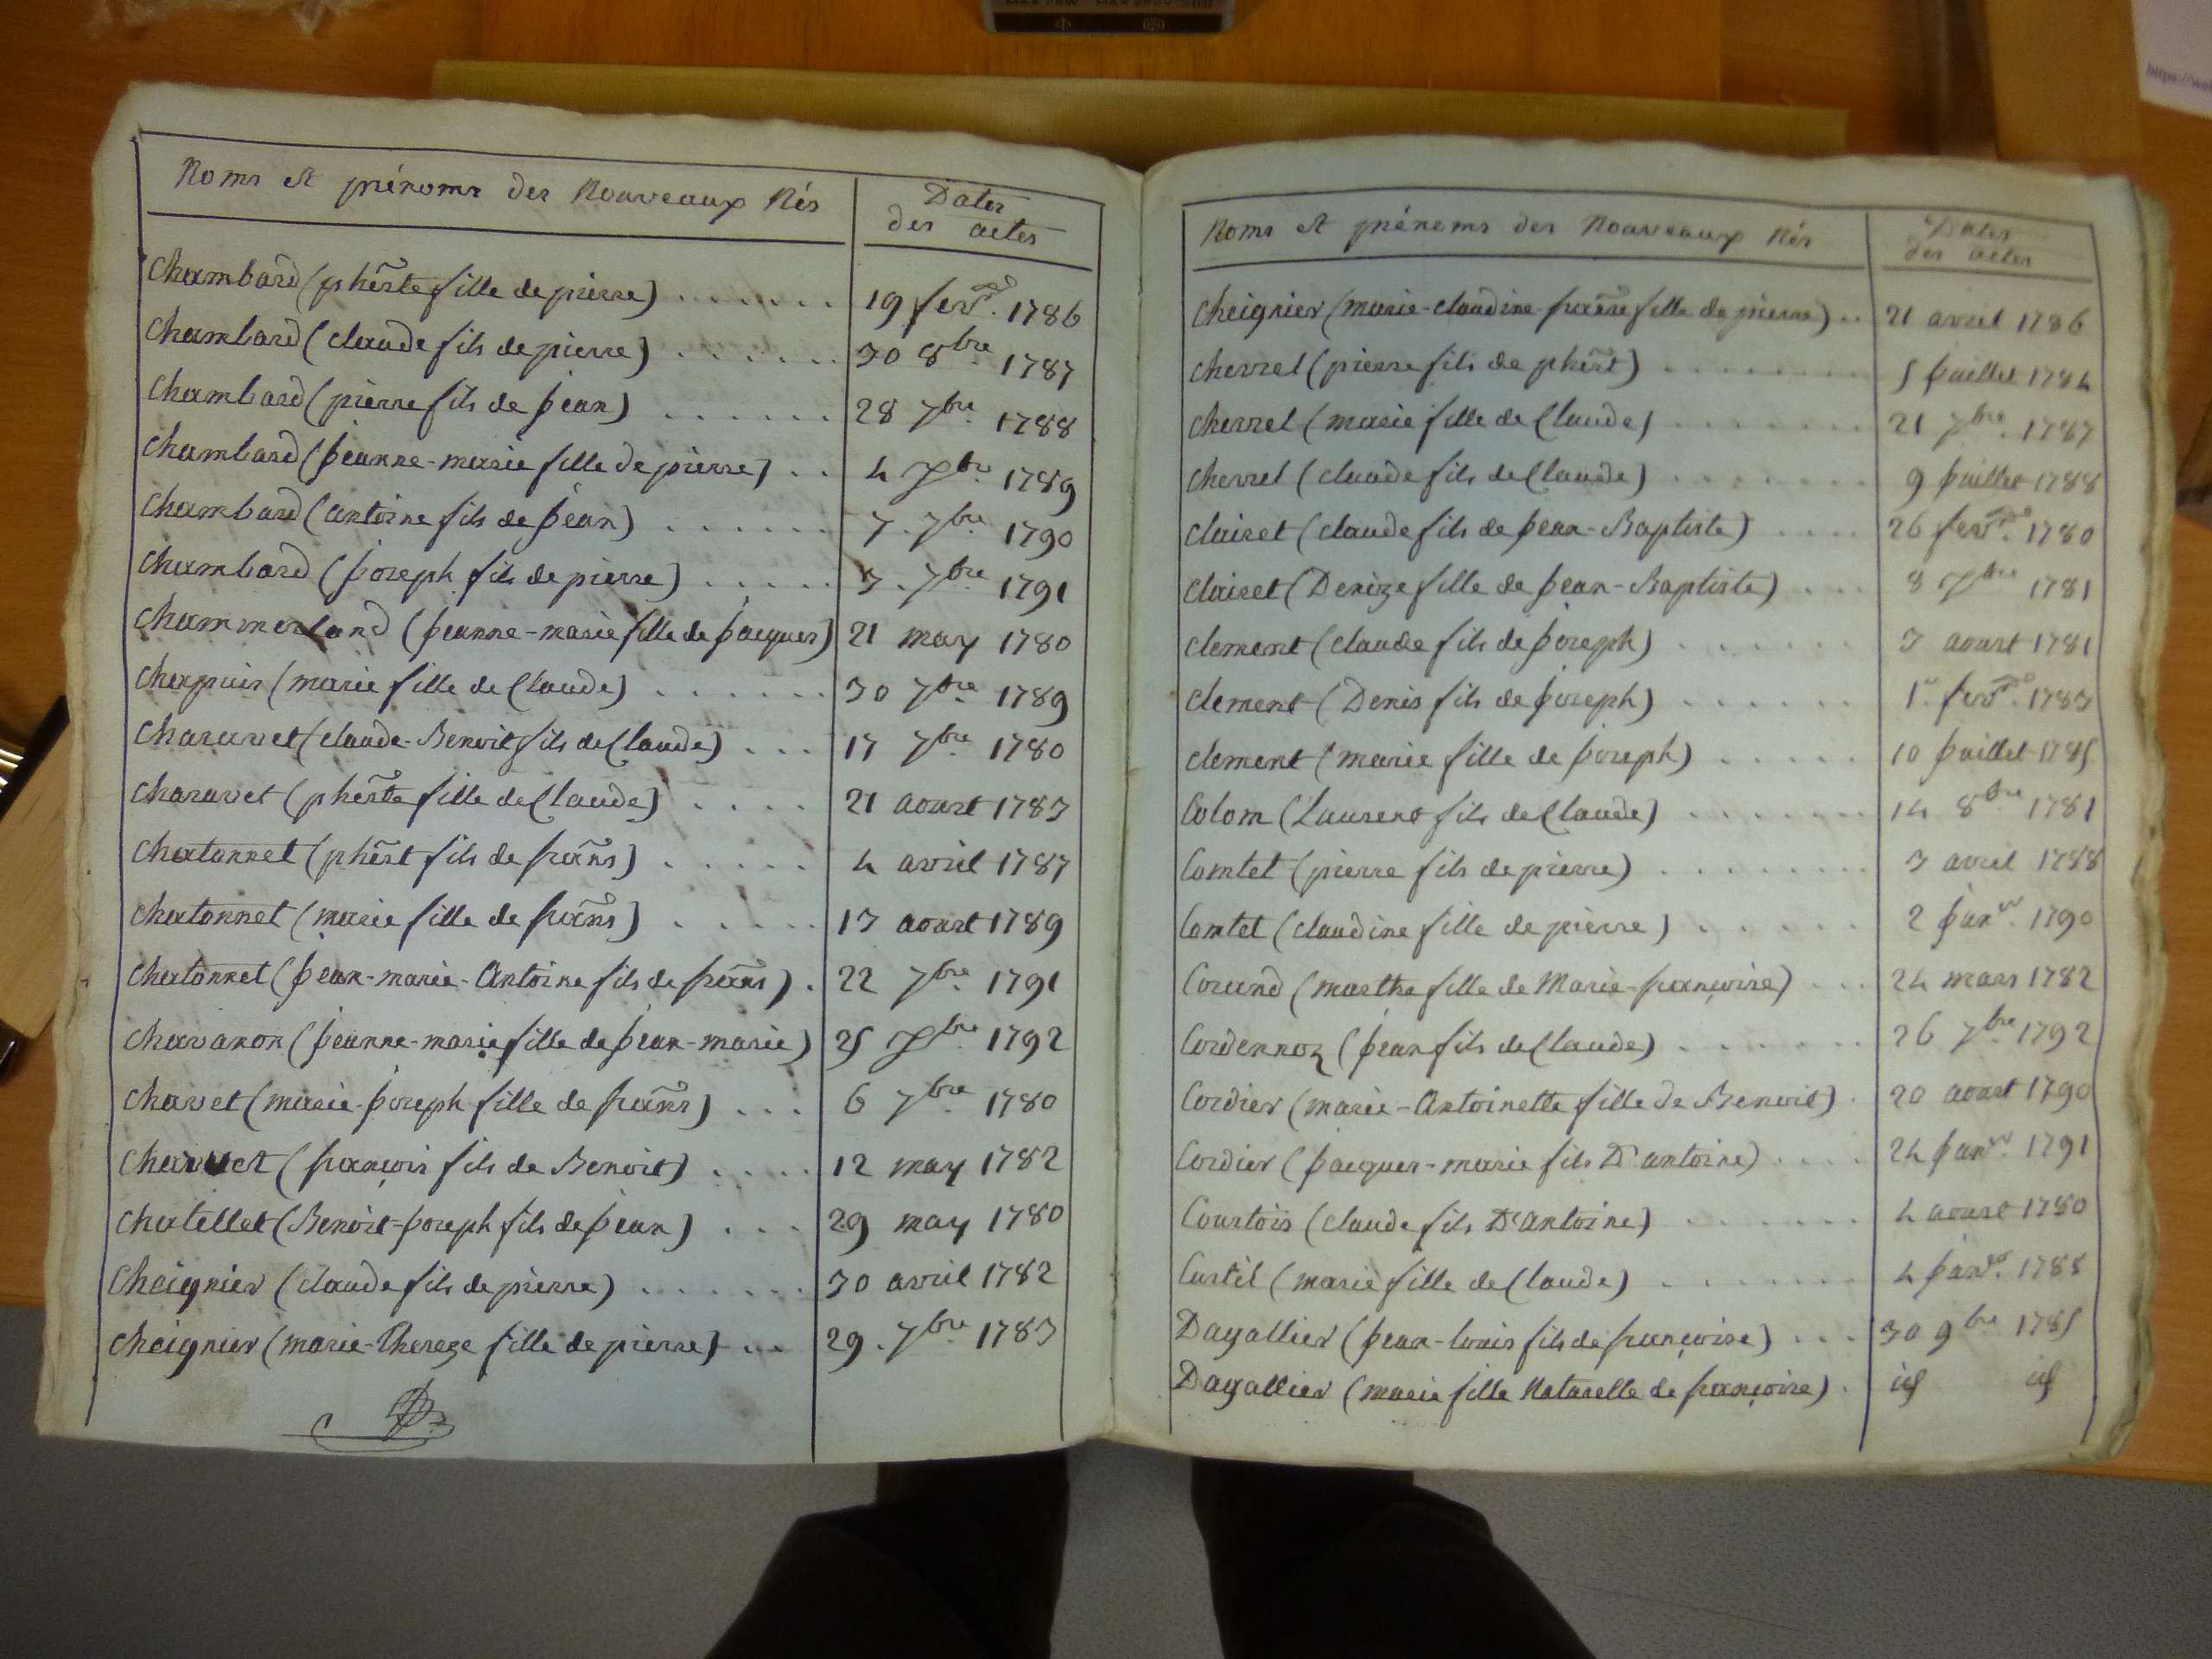 Noms et prénoms des Nouveaux Nés
Dates
des actes
Chambard (phĩrte fille de pierre) ....... 19 fevr. 1786
Chambard (claude fils de pierre) ....... 30 8bre 1787
Chambard (pierre fils de jean) ....... 28 7bre 1788
Chambard (jeanne-marie fille de pierre) .. 4 Xbre 1789
Chambard (antoine fils de jean) ...... 7. 7bre 1790
Chambard (joseph fils de pierre) ..... 3. 7bre 1791
Chammerland (jeanne-marie fille de jacques) 21 may 1780
Chapuis (marie fille de Claude) ...... 30 7bre 1789
Charavet (claude-Benoit fils de Claude) ... 17 7bre 1780
Charavet (phĩrte fille de Claude) .... 21 aoust 1783
Chatonnet (phĩrt fils de frañs) ..... 4 avril 1787
Chatonnet (marie fille de frañs) ..... 13 aoust 1789
Chatonnet (jean-marie-Antoine fils de frañs) . 22 7bre 1791
Chavanon (jeanne-marie fille de jean-marie) 25 Xbre 1792
Chavet (marie-joseph fille de frañs) ... 6 7bre 1780
Charvet (françois fils de Benoit) .... 12 may 1782
Chatellet (Benoit-joseph fils de jean) ... 29 may 1780
Cheignier (claude fils de pierre) ...... 30 avril 1782
Cheignier (marie-Thereze fille de pierre) ... 29. 7bre 1783
Noms et prénoms des Nouveaux Nés
Dates
des actes
Cheignier (marie-claudine-frañse fille de pierre) .. 21 avril 1786
Chevrel (pierre fils de phĩrt) ........ 5 juillet 1784
Chevrel (marie fille de Claude) ....... 21 7bre. 1787
Chevrel (claude fils de Claude) ....... 9 juillet 1788
Clairet (claude fils de jean-Baptiste) .... 26 fevr. 1780
Clairet (Denize fille de jean-Baptiste) ... 8 Xbre 1781
Clement (claude fils de joseph) ...... 3 aoust 1781
Clement (Denis fils de joseph) ...... 1er fevr. 1783
Clement (marie fille de joseph) ..... 10 juillet 1785
Colom (Laurent fils de Claude) ....... 14 8bre 1781
Comtet (pierre fils de pierre) ........ 3 avril 1788
Comtet (claudine fille de pierre) ...... 2 janer. 1790
Corand (marthe fille de Marie-françoise) ... 24 mars 1782
Cordennoz (jean fils de Claude) ....... 26 7bre 1792
Cordier (marie-Antoinette fille de Benoit) . 20 aoust 1790
Cordier (jacques-marie fils D'antoine) .... 24 janer. 1791
Courtois (claude fils D'antoine) ....... 4 aoust 1780
Curtil (marie fille de Claude) ....... 4 janvr. 1788
Dagallier (jean-louis fils de françoise) ... 30 9bre 1785
Dagallier (marie fille Naturelle de françoise) . id id